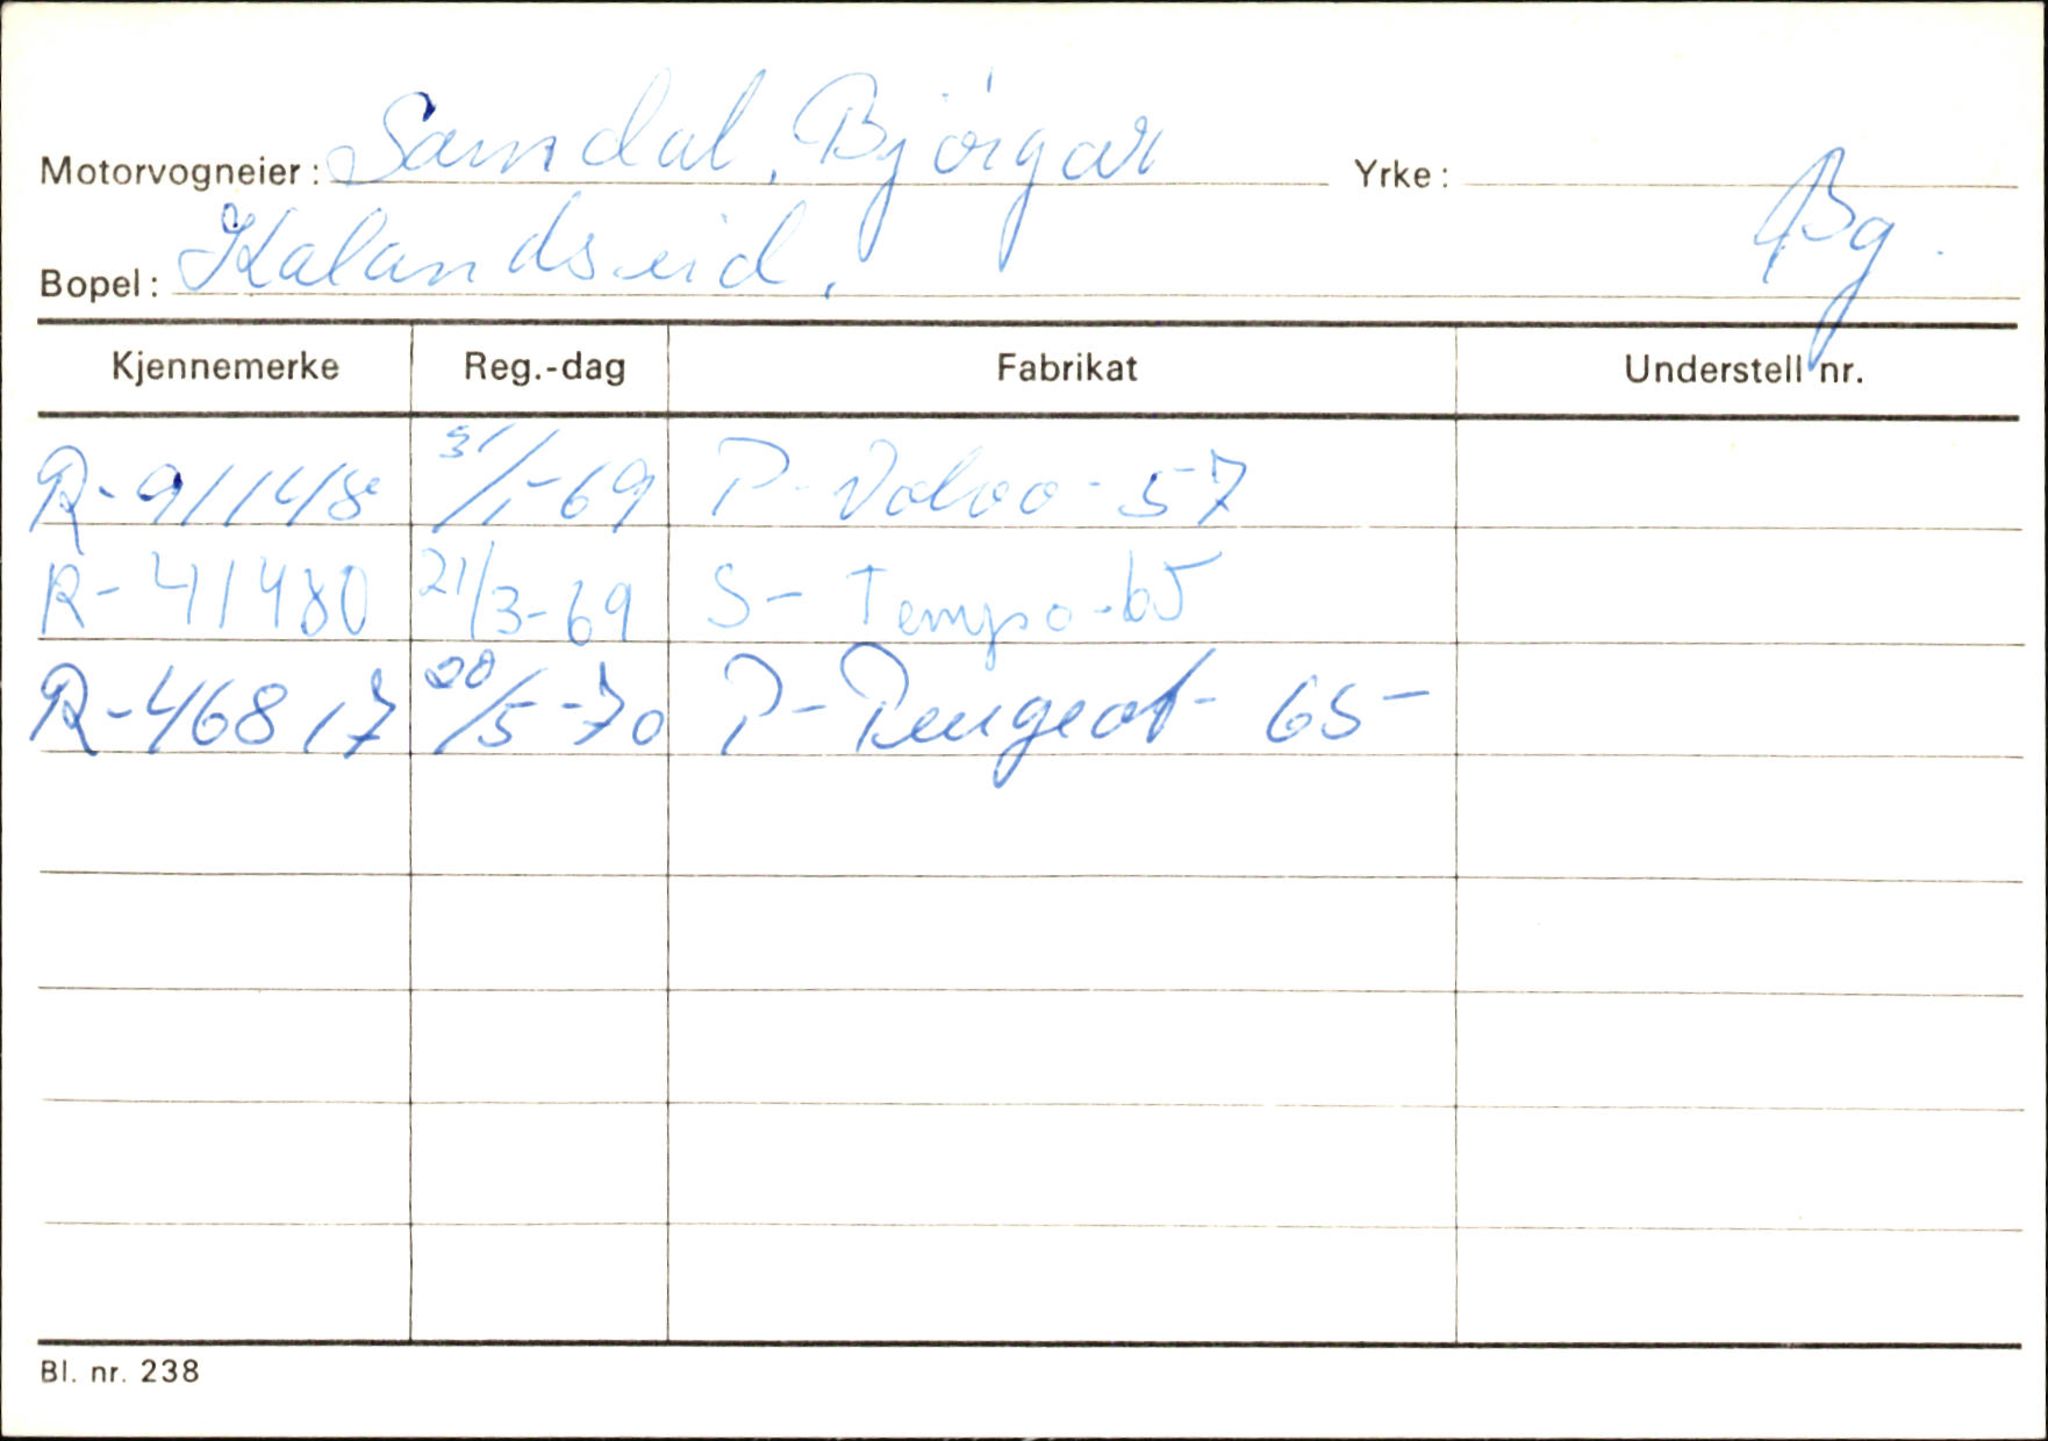 Motorvogneier: Samdal, Bjørgar Yrke:
Bopel: Kalandseid. Bg.
Kjennemerke Reg.-dag Fabrikat Understell nr.
R-91148 31/1-69 P-Volvo-57
R-41480 21/3-69 S-Tempo-65
R-46817 20/5-70 P-Peugeot-65-
Bl. nr. 238